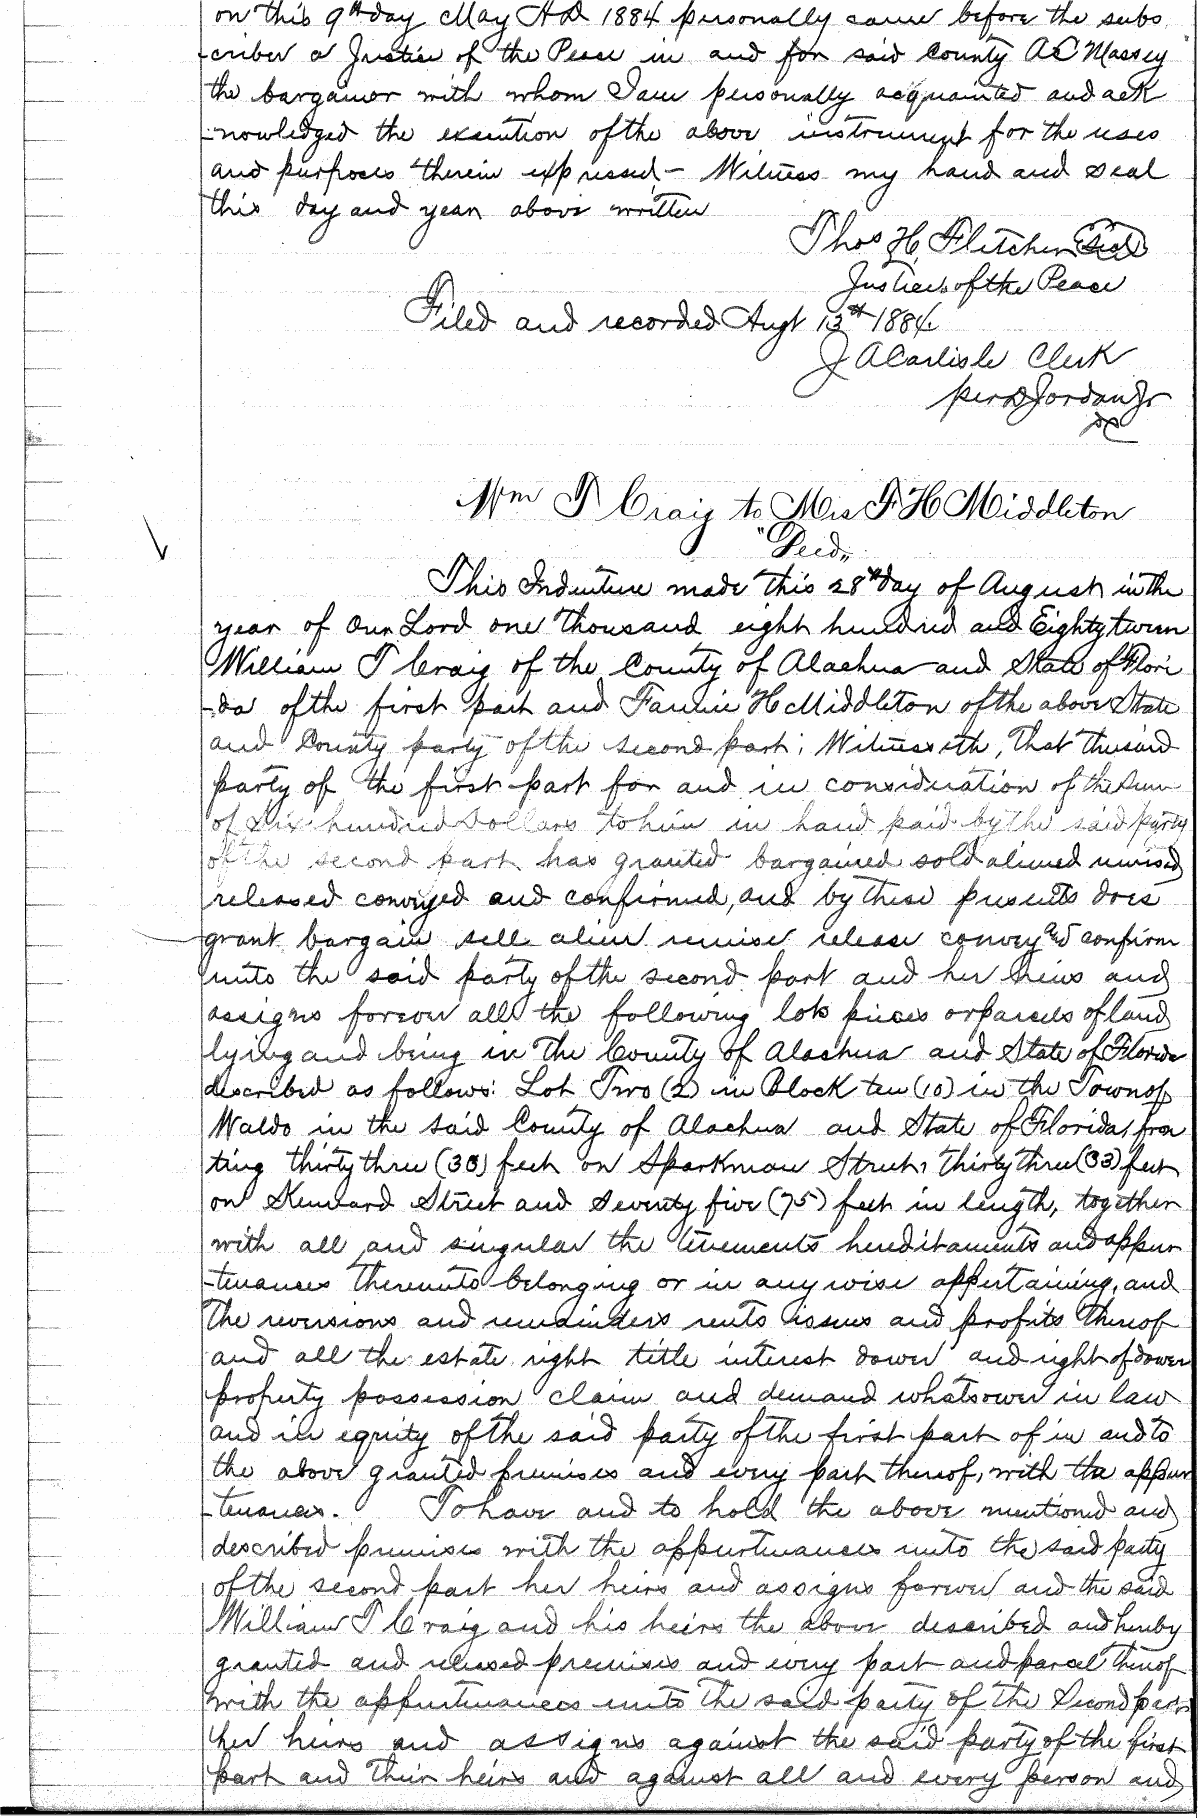 on this 9th day May AD 1884 personally came before the subs
-criber a Justice of the Peace in and for said County AC Massey
the bargainor with whom I am personally acquainted and ack
-nowledged the execution of the above instrument for the uses
and purposes therein expressed - Witness my hand and seal
this day and year above written
Thos H. Fletcher Seal
Justice of the Peace
Filed and recorded Augt 13th 1884.
J A Carlisle Clerk
per D Jordan Jr
DC
Wm T Craig to Mrs F H Middleton
"Deed"
This Indenture made this 28th day of August in the
year of Our Lord one thousand eight hundred and Eighty
William T Craig of the County of Alachua and State of Flori
-da of the first part and Fannie H Middleton of the above State
and County party of the second part; Witnesseth, That the said
party of the first part for and in consideration of the sum
of Six hundred Dollars to him in hand paid by the said party
of the second part has granted bargained sold aliened remised
released conveyed and confirmed, and by these presents does
grant bargain sell alien remise release convey and confirm
unto the said party of the second part and her heirs and
assigns forever all the following lots pieces or parcels of land
lying and being in the County of Alachua and State of Florida
described as follows: Lot Two (2) in Block ten (10) in the Town of
Waldo in the said County of Alachua and State of Florida, fron
ting thirty three (33) feet on Sparkman Street, thirty three (33) feet
on Kennard Street and Seventy five (75) feet in length, together
with all and singular the tenements hereditaments and appur
-tenances thereunto belonging or in any wise appertaining, and
the reversions and remainders rents issues and profits thereof
and all the estate right title interest dower and right of dower
property possession claim and demand whatsoever in law
and in equity of the said party of the first part of in and to
the above granted premises and every part thereof, with the appur
-tenances. To have and to hold the above mentioned and
described premises with the appurtenances unto the said party
of the second part her heirs and assigns forever and the said
William T Craig and his heirs the above described and hereby
granted and released premises and every part and parcel thereof
with the appurtenances unto the said party of the Second part
her heirs and assigns against the said party of the first
part and their heirs and against all and every person and